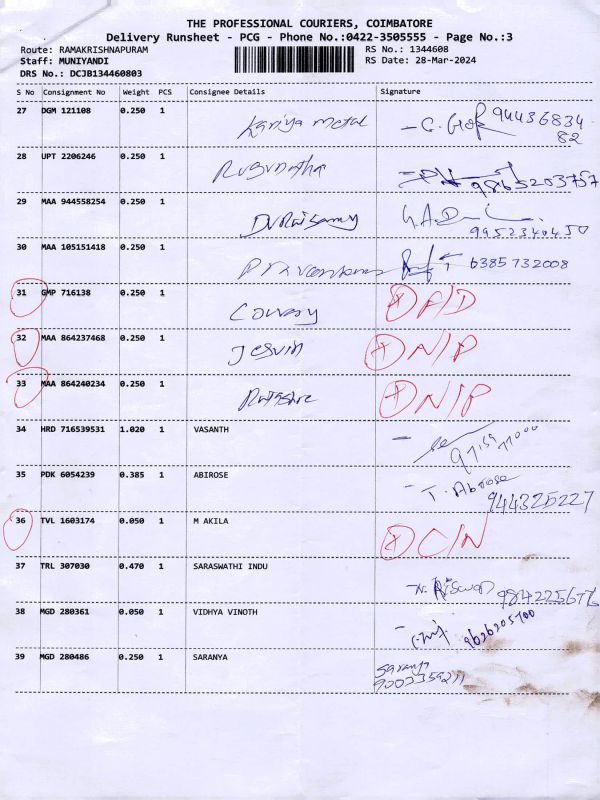 THE PROFESSIONAL COURIERS, COIMBATORE
Delivery Runsheet - PCG - Phone No.:0422-3505555 - Page No.:3
Route: RAMAKRISHNAPURAM RS No.: 1344608
Staff: MUNIYANDI RS Date: 28-Mar-2024
DRS No.: DCJB134460803
S No Consignment No Weight PCS Consignee Details Signature
27 DGM 121108 0.250 1 Kaniya metal 94436834
82
28 UPT 2206246 0.250 1 Rugunatha 9865203757
29 MAA 944558254 0.250 1 Duraisamy
9952340450
30 MAA 105151418 0.250 1 6385732008
31 GMP 716138 0.250 1 F/D
32 MAA 864237468 0.250 1 Jesvin N/P
33 MAA 864240234 0.250 1 N/P
34 HRD 716539531 1.020 1 VASANTH
35 PDK 6054239 0.385 1 ABIROSE T. Abirose
944325227
36 TVL 1603174 0.050 1 M AKILA C/N
37 TRL 307030 0.470 1 SARASWATHI INDU
38 MGD 280361 0.050 1 VIDHYA VINOTH 9626205700
39 MGD 280486 0.250 1 SARANYA Saranya
9003359211